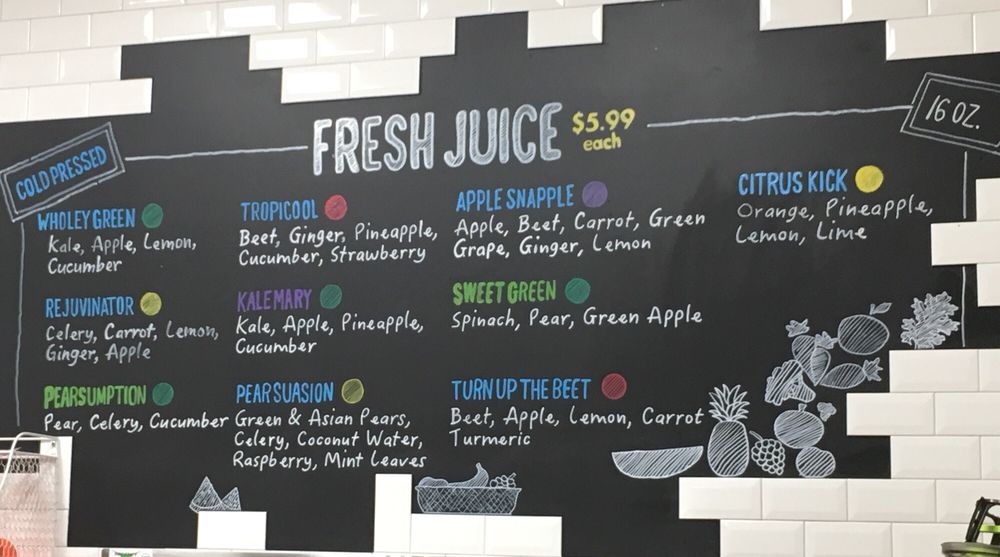 COLD PRESSED
FRESH JUICE
$5.99
each
16 OZ.
WHOLEY GREEN
Kale, Apple, Lemon,
Cucumber
REJUVINATOR
Celery, Carrot, Lemon,
Ginger, Apple
PEARSUMPTION
Pear, Celery, Cucumber
TROPICOOL
Beet, Ginger, Pineapple,
Cucumber, Strawberry
KALE MARY
Kale, Apple, Pineapple,
Cucumber
PEARSUASION
Green & Asian Pears,
Celery, Coconut Water,
Raspberry, Mint Leaves
APPLE SNAPPLE
Apple, Beet, Carrot, Green
Grape, Ginger, Lemon
SWEET GREEN
Spinach, Pear, Green Apple
TURN UP THE BEET
Beet, Apple, Lemon, Carrot
Turmeric
CITRUS KICK
Orange, Pineapple,
Lemon, Lime